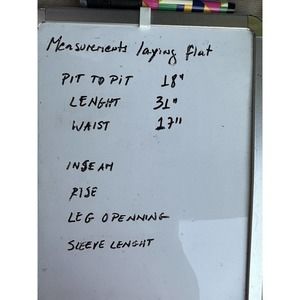 Measurements laying flat
PIT TO PIT 18"
LENGHT 31"
WAIST 17"
INSEAM
RISE
LEG OPENNING
SLEEVE LENGHT